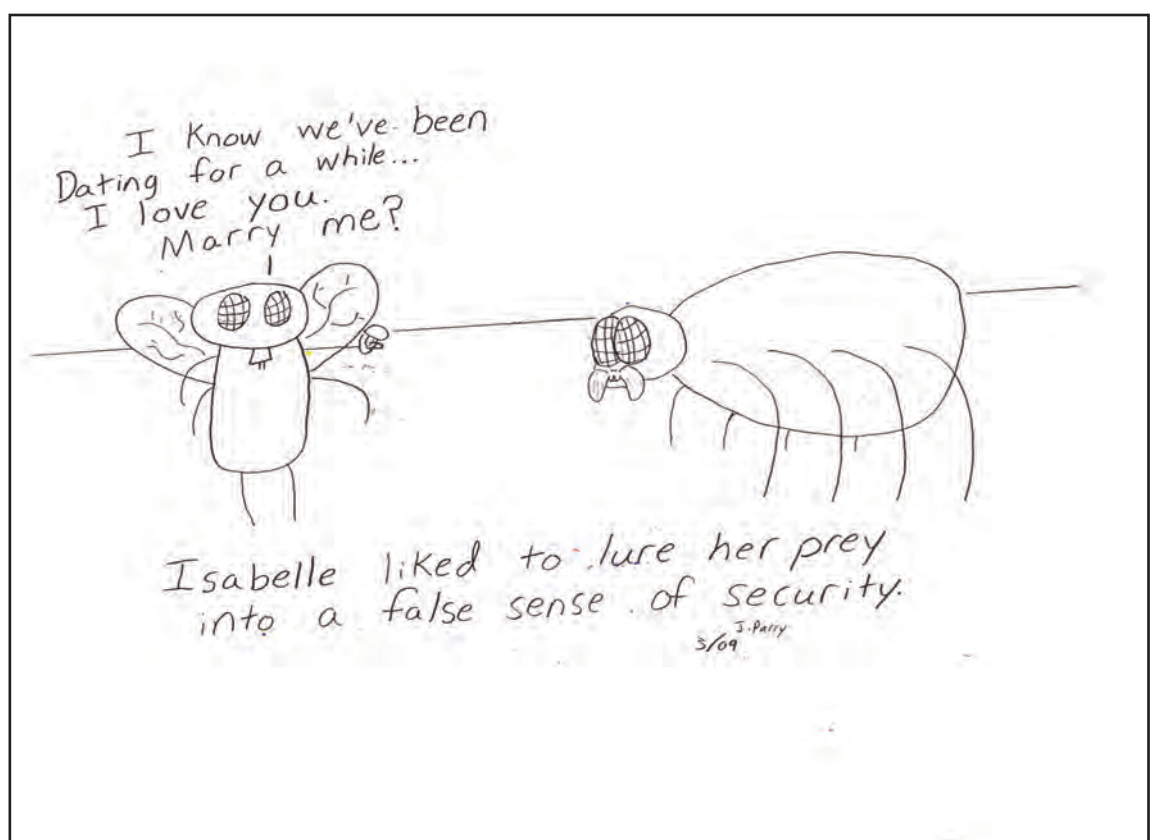 I Know we've been
Dating for a while...
I love you.
Marry me?
Isabelle liked to lure her prey
into a false sense of security.
J. Parry
3/09